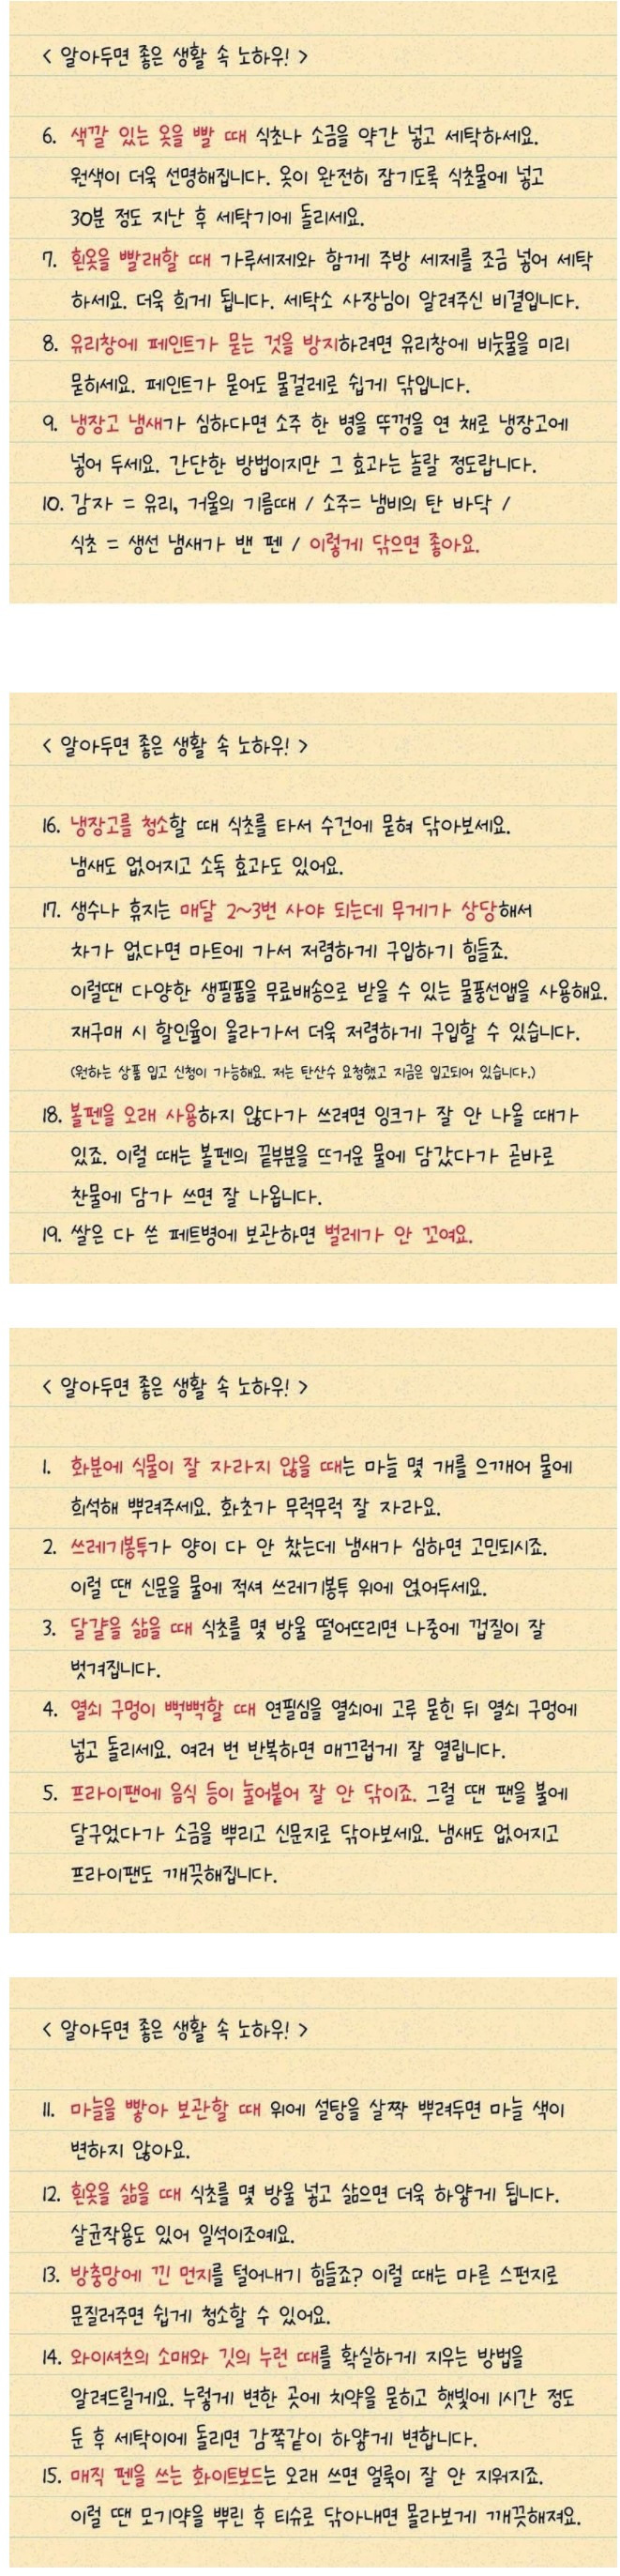 < 알아두면 좋은 생활 속 노하우! >
6. 색깔 있는 옷을 빨 때 식초나 소금을 약간 넣고 세탁하세요.
원색이 더욱 선명해집니다. 옷이 완전히 잠기도록 식초물에 넣고
30분 정도 지난 후 세탁기에 돌리세요.
7. 흰옷을 빨래할 때 가루세제와 함께 주방 세제를 조금 넣어 세탁
하세요. 더욱 희게 됩니다. 세탁소 사장님이 알려주신 비결입니다.
8. 유리창에 페인트가 묻는 것을 방지하려면 유리창에 비눗물을 미리
묻히세요. 페인트가 묻어도 물걸레로 쉽게 닦입니다.
9. 냉장고 냄새가 심하다면 소주 한 병을 뚜껑을 연 채로 냉장고에
넣어 두세요. 간단한 방법이지만 그 효과는 놀랄 정도랍니다.
10. 감자 = 유리, 거울의 기름때 / 소주= 냄비의 탄 바닥 /
식초 = 생선 냄새가 밴 펜 / 이렇게 닦으면 좋아요.
< 알아두면 좋은 생활 속 노하우! >
16. 냉장고를 청소할 때 식초를 타서 수건에 묻혀 닦아보세요.
냄새도 없어지고 소독 효과도 있어요.
17. 생수나 휴지는 매달 2~3번 사야 되는데 무게가 상당해서
차가 없다면 마트에 가서 저렴하게 구입하기 힘들죠.
이럴땐 다양한 생필품을 무료배송으로 받을 수 있는 물풍선앱을 사용해요.
재구매 시 할인율이 올라가서 더욱 저렴하게 구입할 수 있습니다.
(원하는 상품 입고 신청이 가능해요. 저는 탄산수 요청했고 지금은 입고되어 있습니다.)
18. 볼펜을 오래 사용하지 않다가 쓰려면 잉크가 잘 안 나올 때가
있죠. 이럴 때는 볼펜의 끝부분을 뜨거운 물에 담갔다가 곧바로
찬물에 담가 쓰면 잘 나옵니다.
19. 쌀은 다 쓴 페트병에 보관하면 벌레가 안 꼬여요.
< 알아두면 좋은 생활 속 노하우! >
1. 화분에 식물이 잘 자라지 않을 때는 마늘 몇 개를 으깨어 물에
희석해 뿌려주세요. 화초가 무럭무럭 잘 자라요.
2. 쓰레기봉투가 양이 다 안 찼는데 냄새가 심하면 고민되시죠.
이럴 땐 신문을 물에 적셔 쓰레기봉투 위에 얹어두세요.
3. 달걀을 삶을 때 식초를 몇 방울 떨어뜨리면 나중에 껍질이 잘
벗겨집니다.
4. 열쇠 구멍이 뻑뻑할 때 연필심을 열쇠에 고루 묻힌 뒤 열쇠 구멍에
넣고 돌리세요. 여러 번 반복하면 매끄럽게 잘 열립니다.
5. 프라이팬에 음식 등이 눌어붙어 잘 안 닦이죠. 그럴 땐 팬을 불에
달구었다가 소금을 뿌리고 신문지로 닦아보세요. 냄새도 없어지고
프라이팬도 깨끗해집니다.
< 알아두면 좋은 생활 속 노하우! >
11. 마늘을 빻아 보관할 때 위에 설탕을 살짝 뿌려두면 마늘 색이
변하지 않아요.
12. 흰옷을 삶을 때 식초를 몇 방울 넣고 삶으면 더욱 하얗게 됩니다.
살균작용도 있어 일석이조예요.
13. 방충망에 낀 먼지를 털어내기 힘들죠? 이럴 때는 마른 스펀지로
문질러주면 쉽게 청소할 수 있어요.
14. 와이셔츠의 소매와 깃의 누런 때를 확실하게 지우는 방법을
알려드릴게요. 누렇게 변한 곳에 치약을 묻히고 햇빛에 1시간 정도
둔 후 세탁이에 돌리면 감쪽같이 하얗게 변합니다.
15. 매직 펜을 쓰는 화이트보드는 오래 쓰면 얼룩이 잘 안 지워지죠.
이럴 땐 모기약을 뿌린 후 티슈로 닦아내면 몰라보게 깨끗해져요.